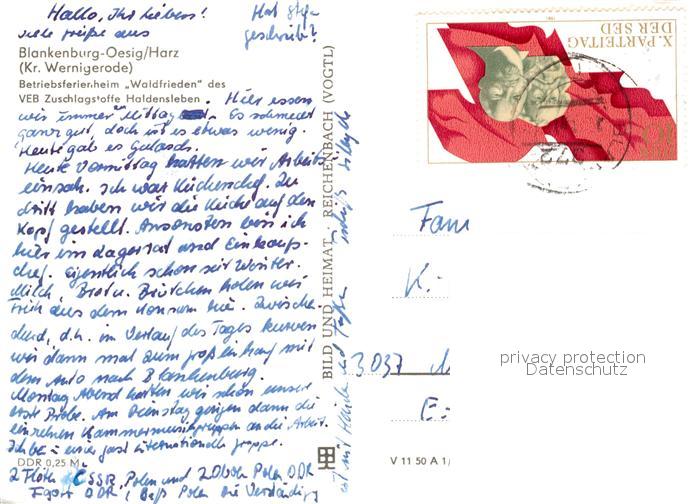 Hallo, Ihr Lieben!
viele Grüße aus
Hat
geschrieben?
Blankenburg-Oesig/Harz
(Kr. Wernigerode)
Betriebsferienheim „Waldfrieden“ des
VEB Zuschlagstoffe Haldensleben
Hier essen
wir immer Mittag. Es schmeckt
ganz gut, doch ist es etwas wenig.
Heute gab es Gulasch.
Heute Vormittag hatten wir Arbeits
einsatz. Ich war Küchenchef. Zu
dritt haben wir die Küche auf den
Kopf gestellt. Ansonsten bin ich
hier im Lagerrat und Einkaufs-
chef. Eigentlich schon seit Winter.
Milch, Brot u. Brötchen holen wir
früh aus dem Konsum hier. Zwische
durch, d.h. im Verlauf des Tages kurven
wir dann mal zum großeinkauf mit
dem Auto nach Blankenburg.
Montag Abend hatten wir schon unsere
erste Probe. Am Dienstag gingen dann die
einzelnen Kammermusikgruppen an die Arbeit.
Ich bin in einer fast internationalen Gruppe.
DDR 0,25 M
2 Flöten CSSR, Polen und 2 Oboen Polen DDR
Fagott DDR, Baß Polen Die Verständig
BILD UND HEIMAT · REICHENBACH (VOGTL)
ist mit Händen und Füßen
X. PARTEITAG
DER SED
1981
Fam
K.
3037 M
V 11 50 A 1/
privacy protection
Datenschutz